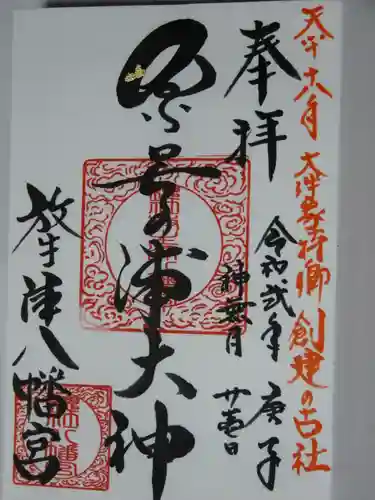 天平十八年 大伴家持卿 創建の古社
奉拝
令和弐年 庚子
神無月 廿壱日
奈呉之浦大神
放生津八幡宮